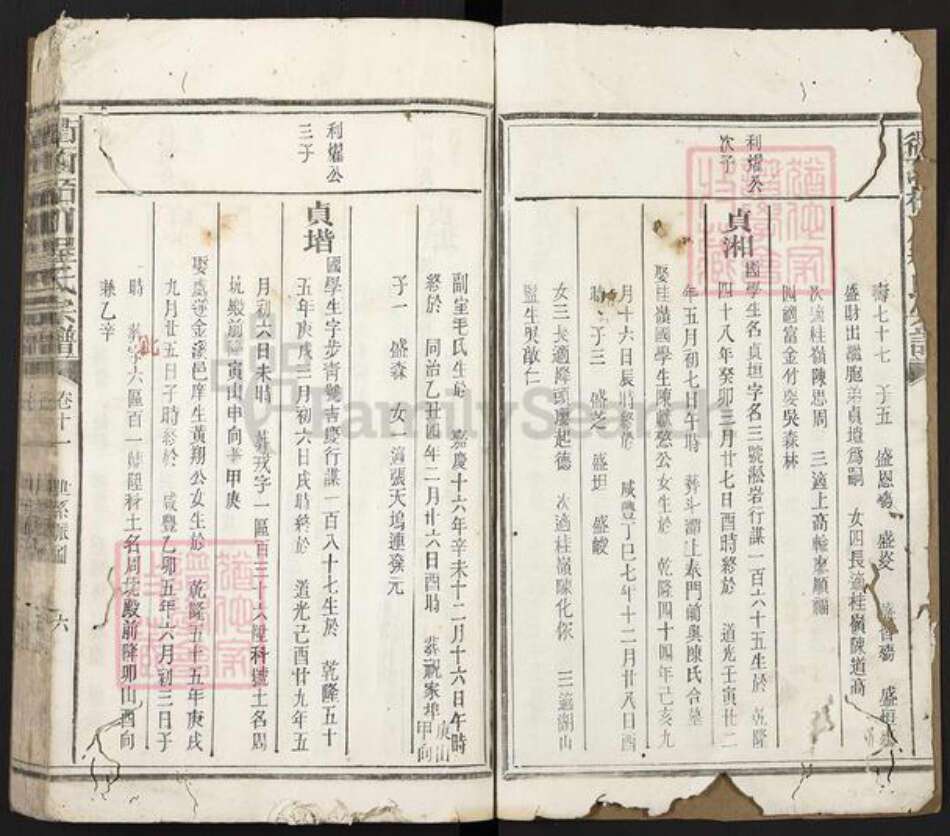 壽七十七 子五 盛恩殤 盛
盛財出濰胞弟貞堦為嗣 女四長適桂嶺陳道高
次適桂嶺陳思周 三適上高輪麥順
四適富金竹㘭吳森林
利燿公
次子
貞湘
國學生名貞垣字名三號淞岩行謀一百六十五生於 乾隆
四十八年癸卯三月廿七日酉時終於 道光壬寅廿二
年五月初七日午時 葬斗潭上泰門前與陳氏合墓
娶桂嶺國學生陳獻愨公女生於 乾隆四十四年己亥九
月十六日辰時終於 咸豐丁巳七年十二月廿八日酉
時 子三 盛芝 盛坦 盛峻
女三長適降頭廖起德 次適桂嶺陳化依 三適湖山
監生吳敵仁
副室毛氏生於 嘉慶十六年辛未十二月十六日午時
終於 同治乙丑四年二月廿六日酉時 葬祝家埠庚山甲向
子一 盛森 女一適張天塢連發元
利燿公
三子
貞堦
國學生字步青號吉慶行謀一百八十七生於 乾隆五十
五年庚戌三月初六日戌時終於 道光己酉廿九年五
月初六日未時 葬戎字一區百三十六陞科號土名周
坑殿前降寅山申向兼甲庚
娶處遂金溪邑庠生黃翔公女生於 乾隆五十五年庚戌
九月廿五日子時終於 咸豐乙卯五年六月初三日子
時 葬字六區百一號陞科土名周坑殿前降卯山酉向
兼乙辛
氏宗譜
卷十一
六
FamilySearch